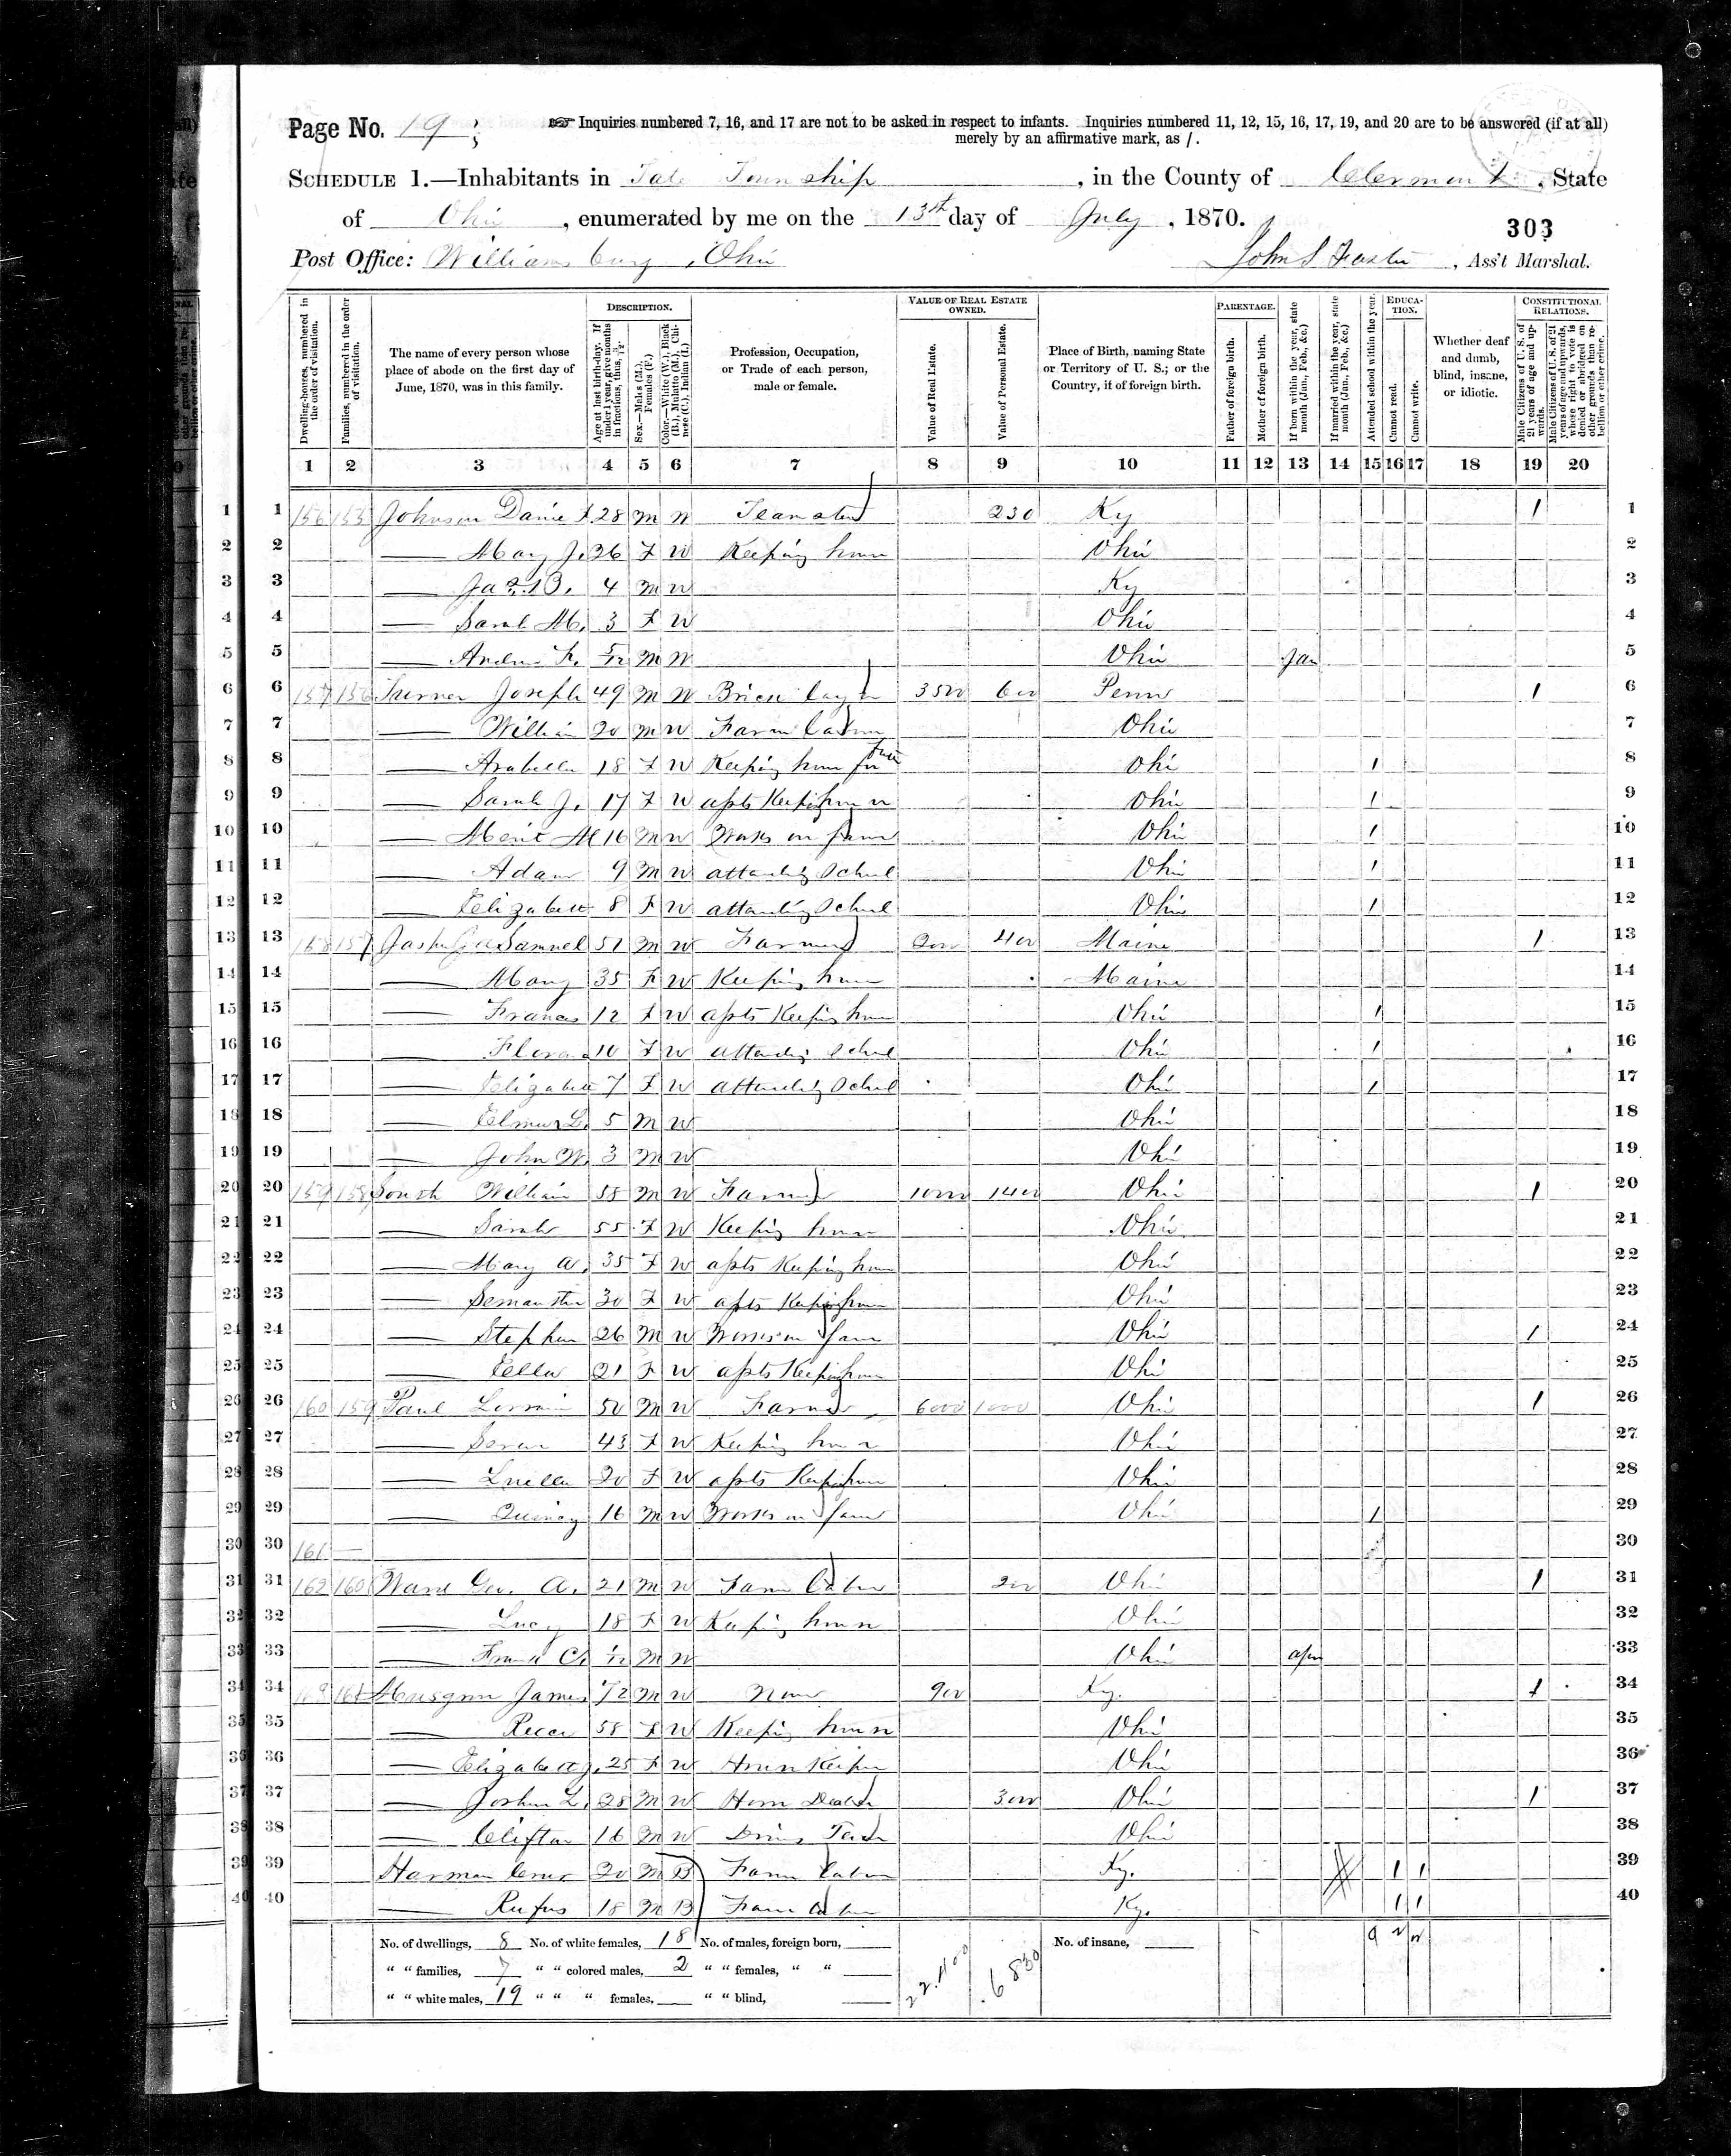 Page No. 19
☞ Inquiries numbered 7, 16, and 17 are not to be asked in respect to infants. Inquiries numbered 11, 12, 15, 16, 17, 19, and 20 are to be answered (if at all)
merely by an affirmative mark, as /.
SCHEDULE 1.—Inhabitants in Tate Township, in the County of Clermont, State
of Ohio, enumerated by me on the 13th day of July, 1870.
303
Post Office: Williamsburg, Ohio
John S, Ass't Marshal.
Dwelling-houses, numbered in the order of visitation.
Families, numbered in the order of visitation.
The name of every person whose place of abode on the first day of June, 1870, was in this family.
DESCRIPTION.
Age at last birth-day. If under 1 year, give months in fractions, thus, 3/12.
Sex.—Males (M.), Females (F.)
Color.—White (W.), Black (B.), Mulatto (M.), Chinese (C.), Indian (I.)
Profession, Occupation, or Trade of each person, male or female.
VALUE OF REAL ESTATE OWNED.
Value of Real Estate.
Value of Personal Estate.
Place of Birth, naming State or Territory of U. S.; or the Country, if of foreign birth.
PARENTAGE.
Father of foreign birth.
Mother of foreign birth.
If born within the year, state month (Jan., Feb., &c.)
If married within the year, state month (Jan., Feb., &c.)
Attended school within the year.
EDUCATION.
Cannot read.
Cannot write.
Whether deaf and dumb, blind, insane, or idiotic.
CONSTITUTIONAL RELATIONS.
Male Citizens of U. S. of 21 years of age and upwards.
Male Citizens of U. S. of 21 years of age and upwards, whose right to vote is denied or abridged on other grounds than rebellion or other crime.
1 2 3 4 5 6 7 8 9 10 11 12 13 14 15 16 17 18 19 20
1 156 Johnson Daniel 28 M W Teamster 230 Ky 1 1
2 Mary J. 26 F W Keeping house Ohio 2
3 4 M W Ky 3
4 Sarah M. 3 F W Ohio 4
5 Andrew 5/12 M W Ohio Jan 5
6 157 156 Joseph 49 M W Brick layer 3500 600 Penn 1 6
7 William 20 M W Farm labor Ohio 7
8 Arabella 18 F W Keeping house for Ohio 1 8
9 Sarah J. 17 F W assts Keeping house Ohio 1 9
10 M 16 M W Works on farm Ohio 1 10
11 Adam 9 M W attending School Ohio 1 11
12 Elizabeth 8 F W attending School Ohio 1 12
13 158 157 Samuel 51 M W Farmer 2000 400 Maine 1 13
14 Mary 35 F W Keeping house Maine 14
15 Frances 12 F W assts Keeping house Ohio 1 15
16 10 F W attending School Ohio 1 16
17 Elizabeth 7 F W attending School Ohio 1 17
18 Elmer L. 5 M W Ohio 18
19 John W. 3 M W Ohio 19
20 159 158 South William 58 M W Farmer 10000 1400 Ohio 1 20
21 Sarah 55 F W Keeping house Ohio 21
22 Mary A. 35 F W assts Keeping house Ohio 22
23 Semantha 30 F W assts Keeping house Ohio 23
24 Stephen 26 M W Works on farm Ohio 1 24
25 Ella 21 F W assts Keeping house Ohio 25
26 160 159 Paul 50 M W Farmer 6000 1000 Ohio 1 26
27 43 F W Keeping house Ohio 27
28 Luella 20 F W assts Keeping house Ohio 28
29 Quincy 16 M W Works on farm Ohio 1 29
30 161 30
31 162 160 Geo. A. 21 M W Farm labor 200 Ohio 1 31
32 Lucy 18 F W Keeping house Ohio 32
33 Frank C. 1/12 M W Ohio Apr 33
34 161 James 72 M W None 900 Ky. 1 34
35 58 F W Keeping house Ohio 35
36 Elizabeth J. 25 F W House Keeper Ohio 36
37 Joshua L. 28 M W Horse Dealer 3000 Ohio 1 37
38 Clifton 16 M W Drives Team Ohio 38
39 Harman 20 M B Farm labor Ky. 1 1 39
40 Rufus 18 M B Farm labor Ky. 1 1 40
No. of dwellings, 8 No. of white females, 18 No. of males, foreign born, No. of insane,
" " families, 7 " " colored males, 2 " " females, " "
" " white males, 19 " " " females, " " blind,
22.400 6830 9 2 2